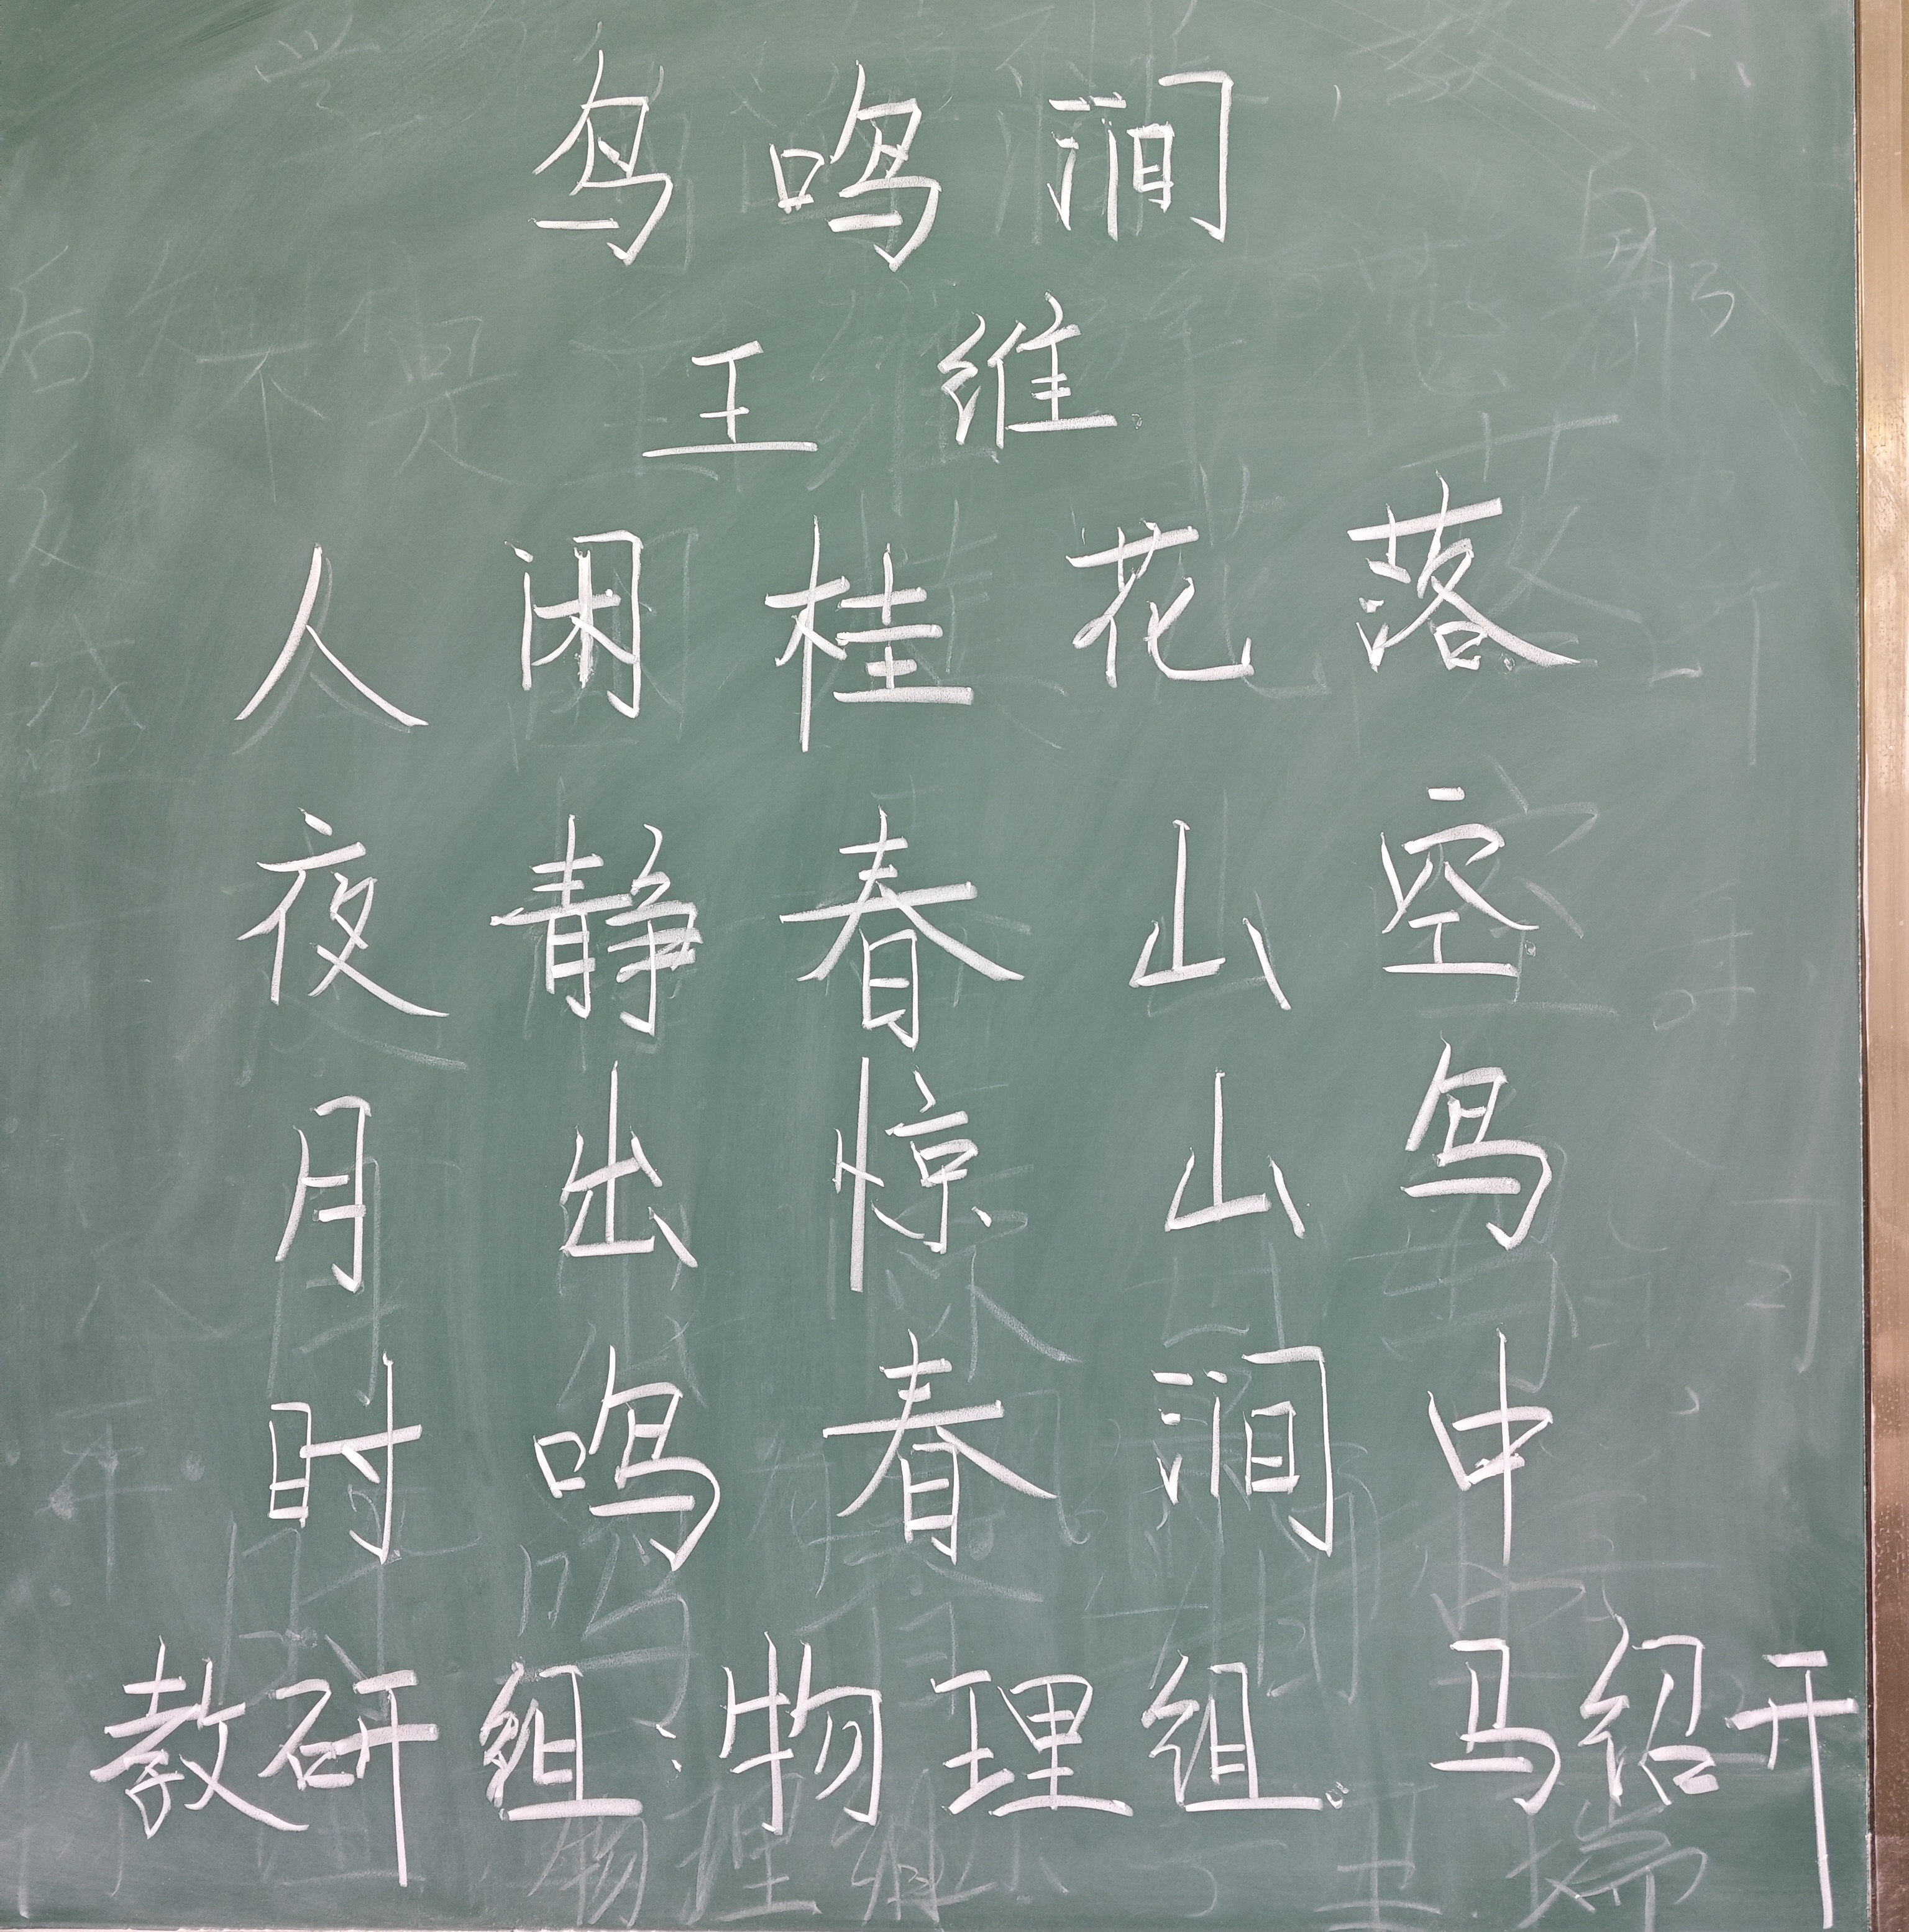 鸟鸣涧
王维
人闲桂花落
夜静春山空
月出惊山鸟
时鸣春涧中
教研组:物理组 马绍开